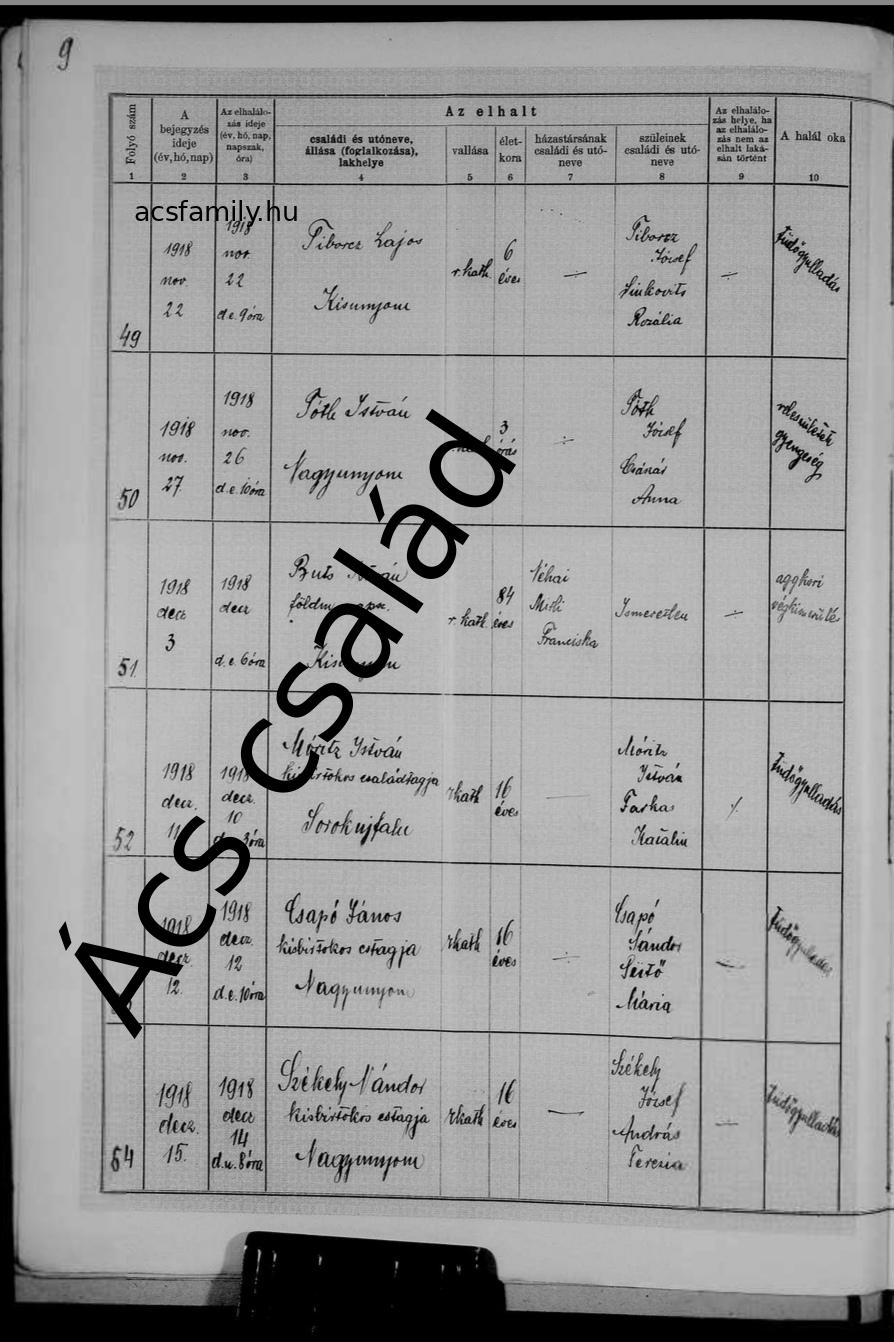 9
Az elhalt
Folyó szám
A bejegyzés ideje (év, hó, nap)
Az elhalálozás ideje (év, hó, nap, napszak, óra)
családi és utóneve, állása (foglalkozása), lakhelye
vallása
életkora
házastársának családi és utóneve
szüleinek családi és utóneve
Az elhalálozás helye, ha az elhalálozás nem az elhalt lakásán történt
A halál oka
1 2 3 4 5 6 7 8 9 10
acsfamily.hu
49
1918 nov. 22
1918 nov. 22 d.e. 9 óra
Tiborcz Lajos
Kisunyom
r. kath.
6 éves
Tiborcz József
Sinkovits Rozália
tüdőgyulladás
50
1918 nov. 27
1918 nov. 26 d.e. 10 óra
Tóth István
Nagyunyom
3 órás
Tóth József
Csánás Anna
veleszületett gyengeség
51
1918 decz 3
1918 decz d.e. 6 óra
r. kath.
84 éves
Néhai
Franciska
Ismeretlen
aggkori végkimerülés
52
1918 decz. 11
1918 decz. 10 3 óra
Móritz István
kisbirtokos családtagja
Sorokujfalu
r kath
16 éves
Móritz István
Farkas Katalin
tüdőgyulladás
1918 decz. 12.
1918 decz. 12 d.e. 10 óra
Csapó János
kisbirtokos cstagja
Nagyunyom
r kath
16 éves
Csapó Sándor
Mária
tüdőgyulladás
54
1918 decz. 15.
1918 decz 14 d.u. 8 óra
Székely Nándor
kisbirtokos cstagja
Nagyunyom
r kath
16 éves
Székely József
András Terezia
tüdőgyulladás
Ács család